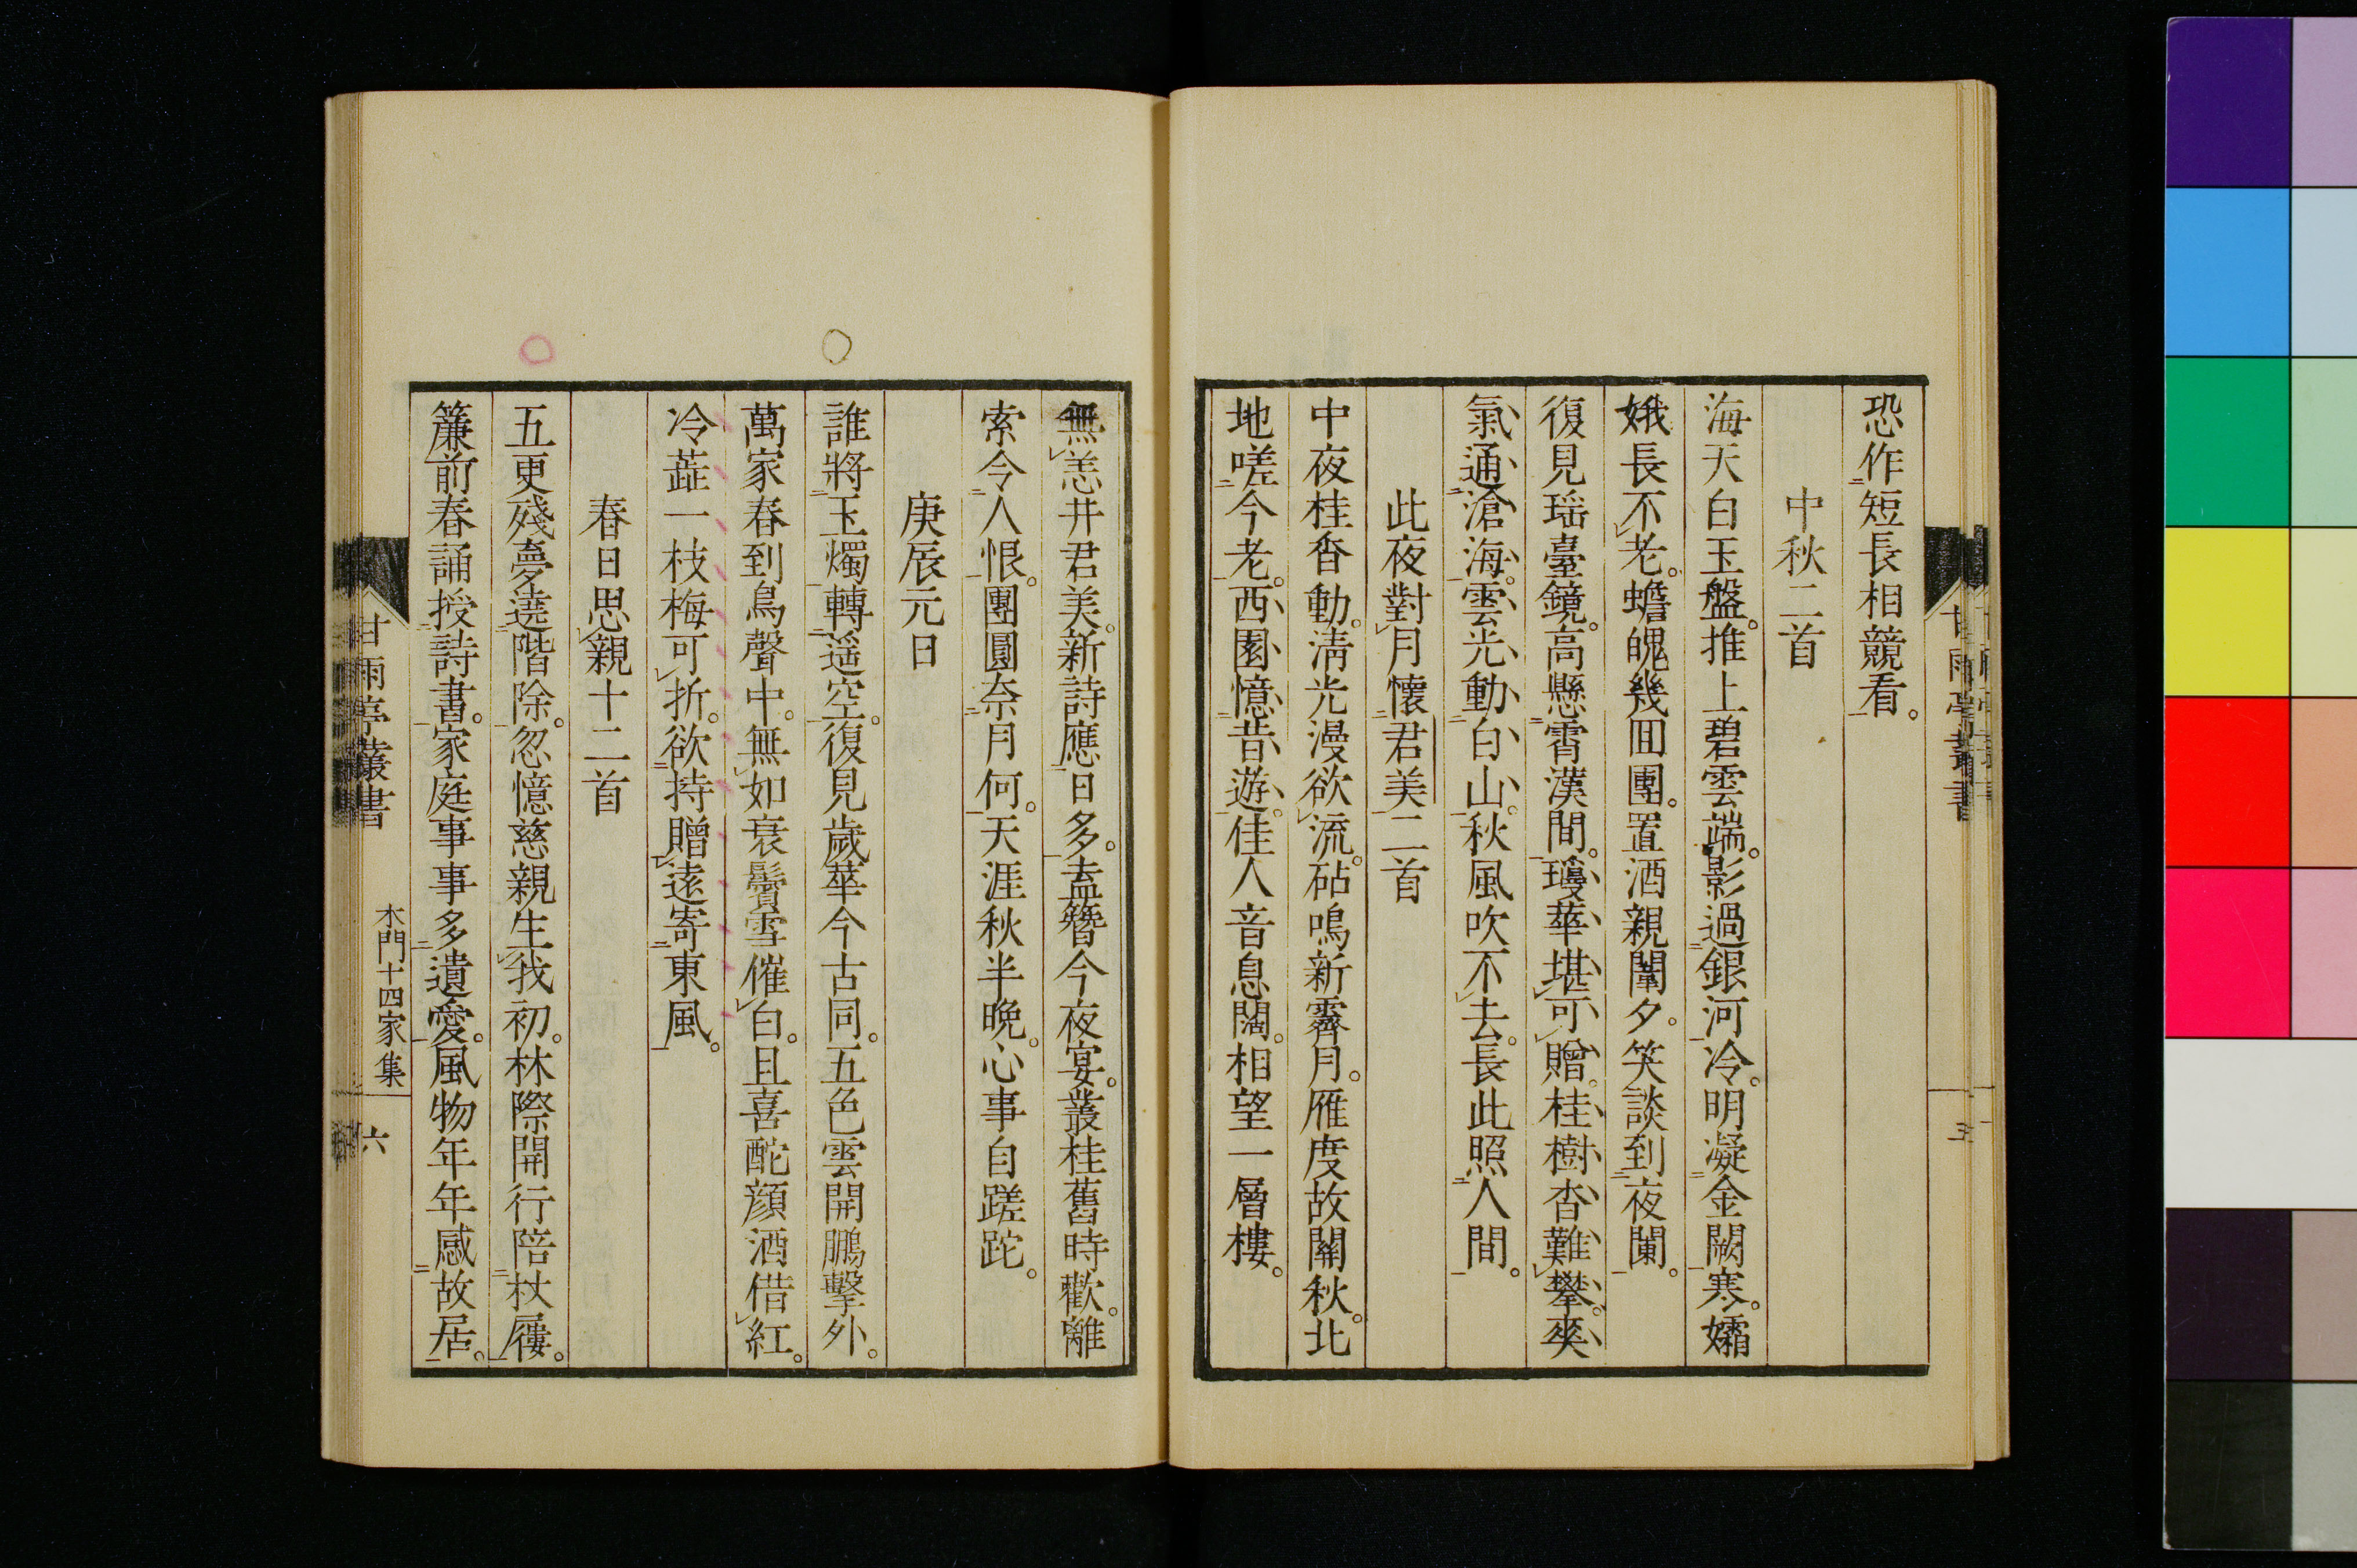 恐作短長相競看。
中秋二首
海天白玉盤。推上碧雲端。影過銀河冷。明凝金闕寒。孀
娥長不老。蟾魄幾囬團。置酒親闈夕。笑談到夜闌。
復見瑶臺鏡。高懸霄漢間。瓊華堪可贈。桂樹杳難攀。爽
氣通滄海。雲光動白山。秋風吹不去。長此照人間。
此夜對月懷君美二首
中夜桂香動。淸光漫欲流。砧鳴新霽月。雁度故關秋。北
地嗟今老。西園憶昔遊。佳人音息闊。相望一層樓。
甘雨亭叢書
無恙井君美。新詩應日多。盍簪今夜宴。叢桂舊時歡。離
索令人恨。團圓奈月何。天涯秋半晩。心事自蹉跎。
庚辰元日
誰將玉燭轉遥空。復見歲華今古同。五色雲開鵬擊外。
萬家春到鳥聲中。無如衰鬢雪催白。且喜酡顔酒借紅。
冷蘂一枝梅可折。欲持贈遠寄東風。
春日思親十二首
五更殘夢遶階除。忽憶慈親生我初。林際開行陪杖屨。
簾前春誦授詩書。家庭事事多遺愛。風物年年感故居。
甘雨亭叢書
木門十四家集
六